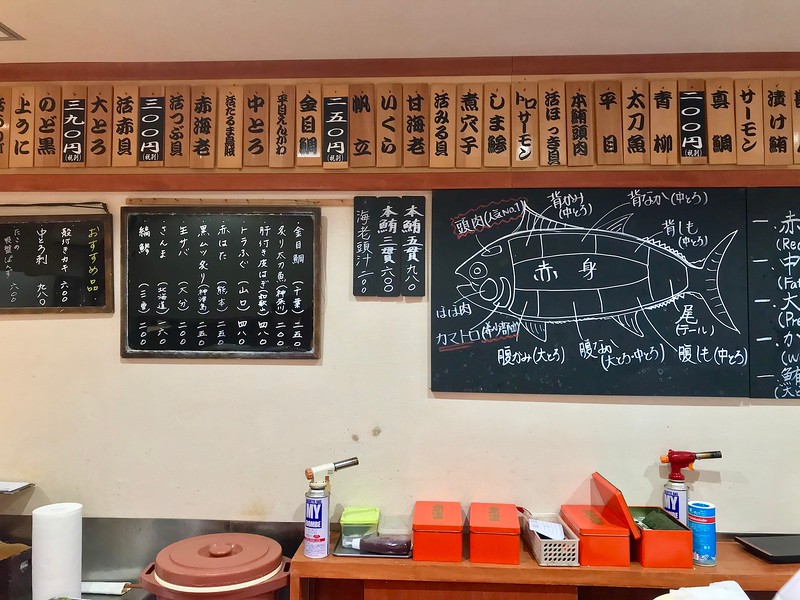 漬け鮪
サーモン
真鯛
二〇〇円(税別)
青柳
太刀魚
平目
本鮪頭肉
活ほっき貝
トロサーモン
しま鯵
煮穴子
活みる貝
甘海老
いくら
帆立
二五〇円(税別)
金目鯛
平目えんがわ
中とろ
活だるま烏賊
赤海老
活つぶ貝
三〇〇円(税別)
活赤貝
大とろ
三九〇円(税別)
のど黒
上うに
おすすめ品
殻付きカキ 六〇〇
中とろ刹 九八〇
たこの吸盤ぽんず 六〇〇
金目鯛(千葉)二五〇
炙り太刀魚(神奈川)二〇〇
肝付き皮はぎ(和歌山)四八〇
トラふぐ(山口)四八〇
赤はた(熊本)二五〇
黒ムツ炙り(神津島)二五〇
生サバ(大分)二〇〇
さんま(北海道)二六〇
縞鯵(三重)二〇〇
本鮪五貫 九八〇
本鮪三貫 六〇〇
海老頭汁 二〇〇
頭肉(人気No.1)
背かみ(中とろ)
背なか(中とろ)
背しも(中とろ)
赤身
ほほ肉
カマトロ
尾(テール)
腹かみ(大とろ)
腹なか(大とろ・中とろ)
腹しも(中とろ)
赤
(Re
中
(Fa
大
(Pre
MY
BOMBE
MY